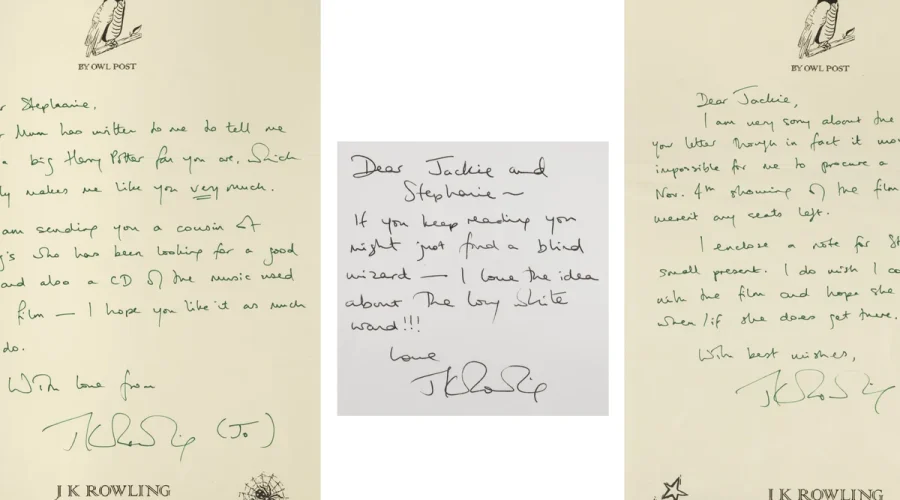 BY OWL POST
r Stephanie,
r Mum has written to me to tell me
a big Harry Potter fan you are, which
ly makes me like you very much.
am sending you a cousin of
g's She has been looking for a good
and also a CD of the music used
film — I hope you like it as much
do.
With love from
JKRowling (Jo)
J K ROWLING
Dear Jackie and
Stephanie ~
If you keep reading you
might just find a blind
wizard — I love the idea
about The Long White
wand!!!
love
JKRowling
BY OWL POST
Dear Jackie,
I am very sorry about the
your letter though in fact it wou
impossible for me to procure a
Nov. 4th showing of the film
werent any seats left.
I enclose a note for St
small present. I do wish I co
with the film and hope she
when/if she does get there.
With best wishes,
JKRowling
J K ROWLING